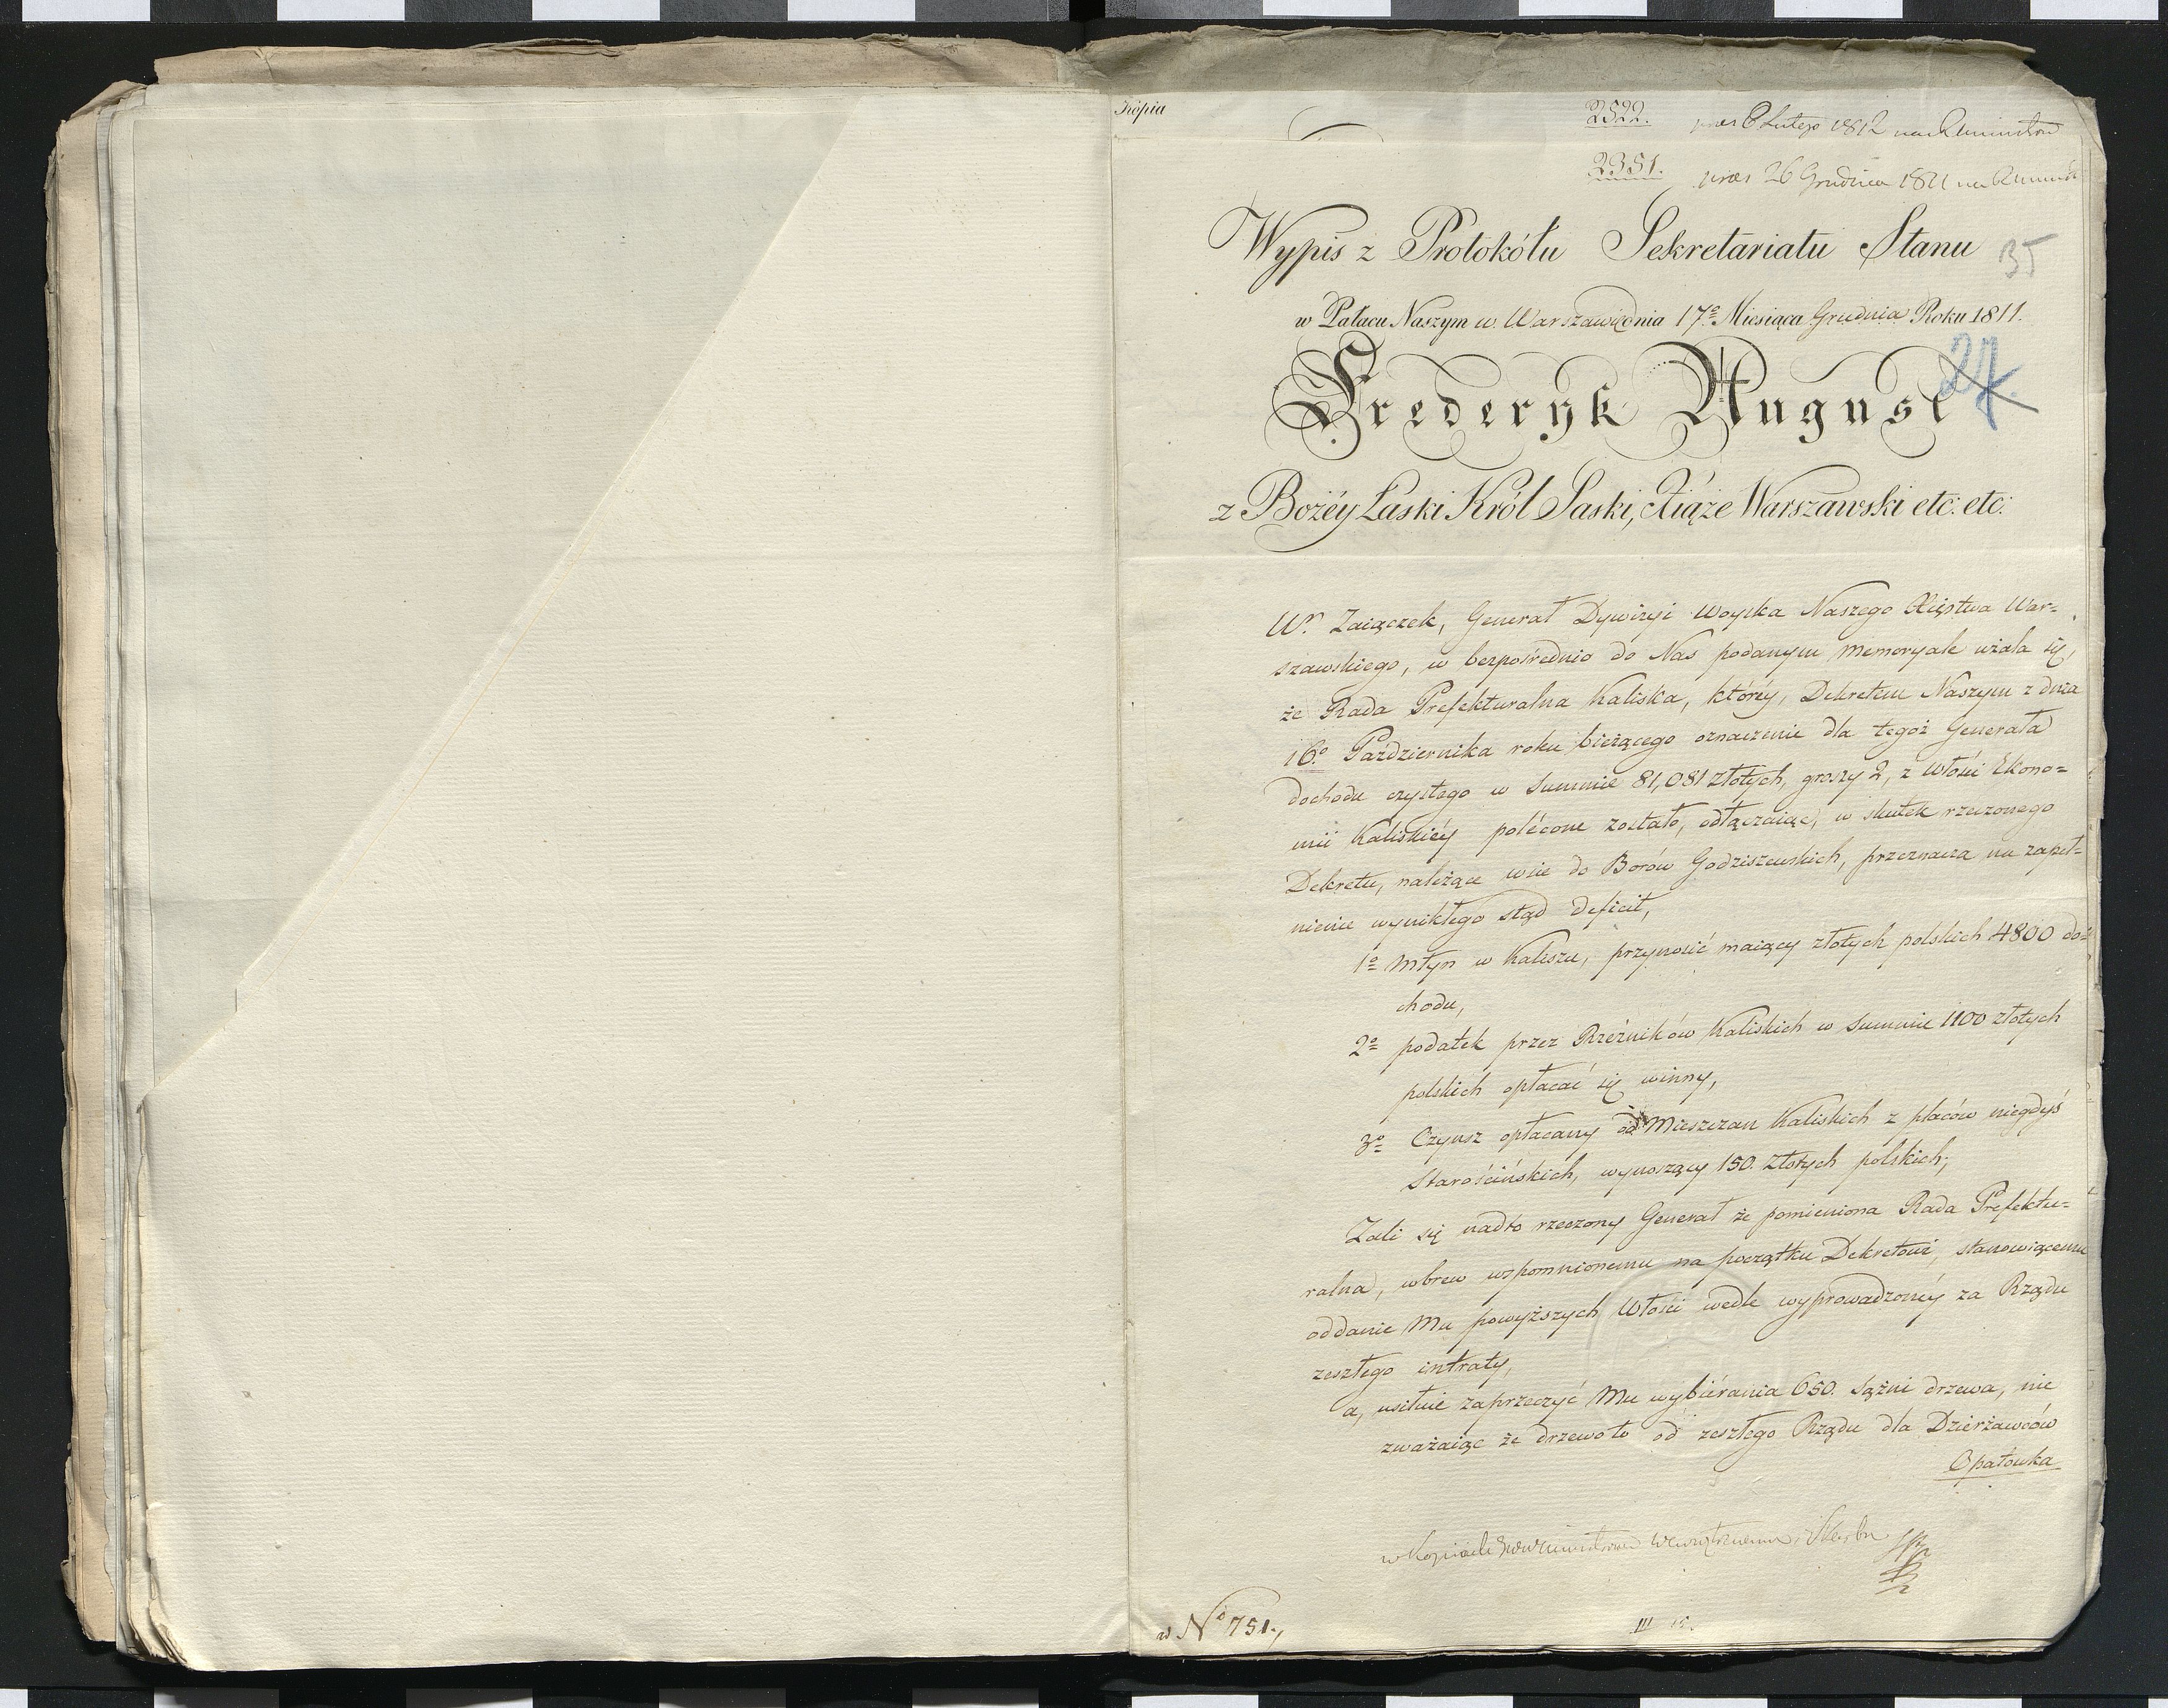 Kopia
2522. pres 8 Lutego 1812 na R ministrów
2351. pres 26 Grudnia 1811 na R minist
Wypis z Protokółu Sekretariatu Stanu
35
w Pałacu Naszym w Warszawie dnia 17º Miesiąca Grudnia Roku 1811.
Frederyk August
27
z Bożéy Łaski Król Saski, Xiąże Warszawski etc: etc:
Wn. Zaiączek, Generał Dywizyi Woyska Naszego Xięstwa War=
szawskiego, w bezpośrednio do Nas podanym memoryale użala się,
że Rada Prefekturalna Kaliska, któréy, Dekretem Naszym z dnia
16º Października roku bieżącego oznaczenie dla tegoż Generała
dochodu czystego w Summie 81,081 złotych, groszy 2, z Włości Ekono=
mii Kaliskiéy polécone zostało, odłączaiąc, w skutek rzeczonego
Dekretu, należące wsie do Borów Godziszewskich, przeznacza na zapeł=
nienie wynikłego stąd deficit,
1º młyn w Kaliszu, przynosić maiący złotych polskich 4800 do=
chodu,
2º podatek przez Rzeźników Kaliskich w Summie 1100 złotych
polskich opłacać się winny,
3º Czynsz opłacany od Mieszczan Kaliskich z placów niegdyś
Starościńskich, wynoszący 150. złotych polskich;
Żali się nadto rzeczony Generał że pomieniona Rada Prefektu=
ralna, wbrew wspomnionemu na początku Dekretowi, stanowiącemu
oddanie Mu powyższych Włości wedle wyprowadzonéy za Rządu
zeszłego intraty,
a, usiłuie zaprzeczyć Mu wybiérania 650. Sążni drzewa, nie
zważaiąc że drzewo to od zeszłego Rządu dla Dzierżawców
Opatówka
w Nº 751.,
III 15.